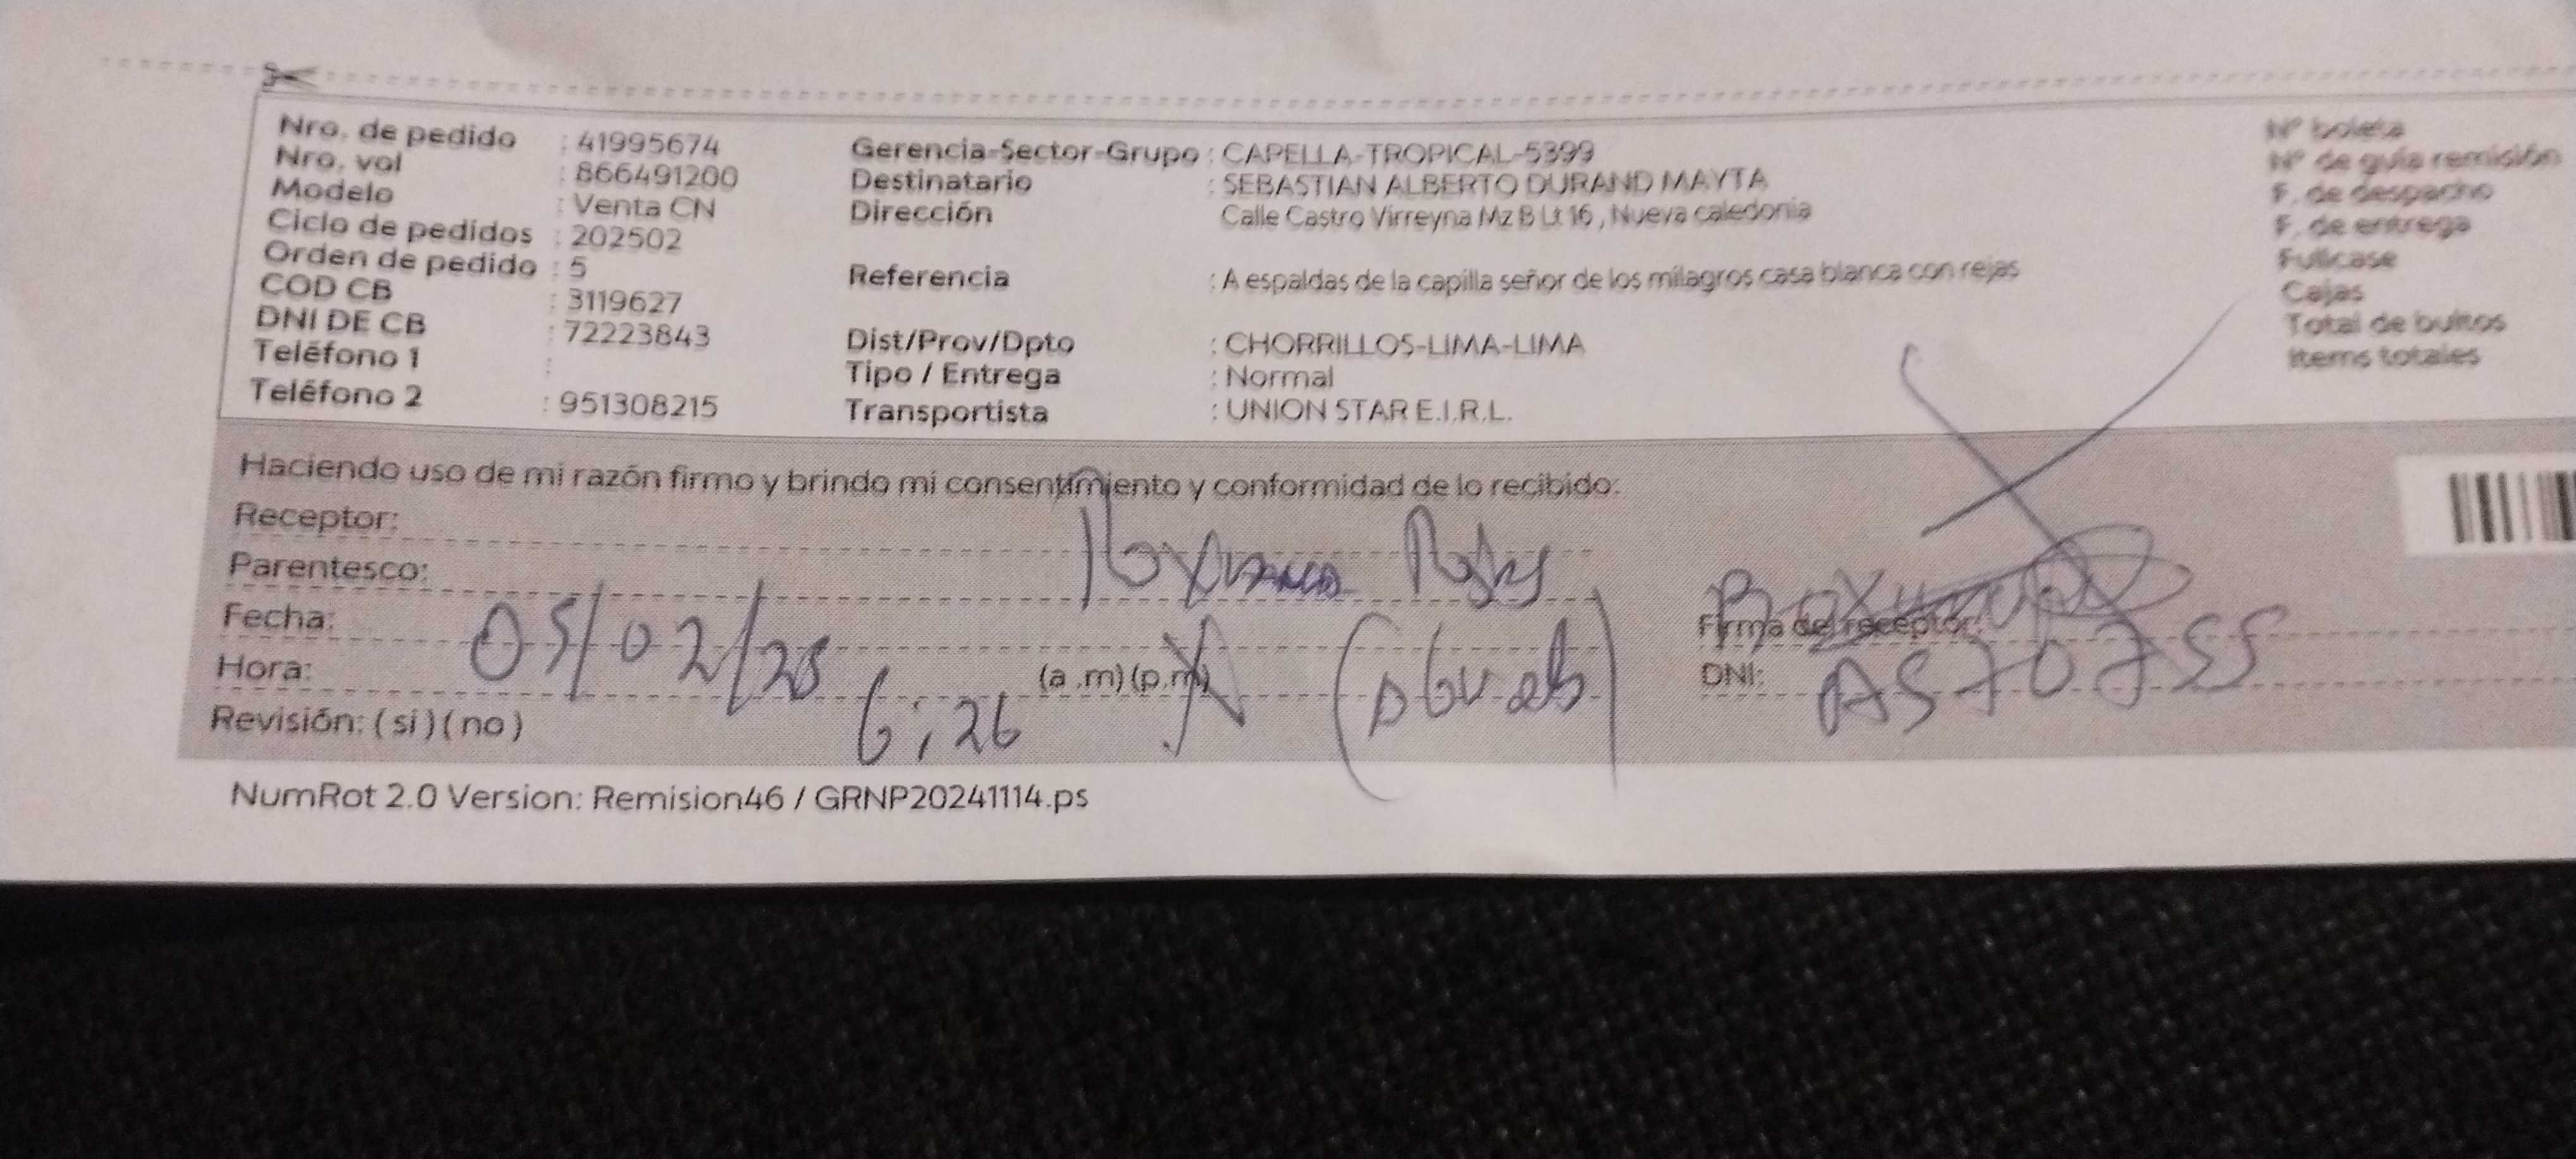 Nro. de pedido : 41995674
Nro. vol : 866491200
Modelo : Venta CN
Ciclo de pedidos : 202502
Orden de pedido : 5
COD CB : 3119627
DNI DE CB : 72223843
Teléfono 1 :
Teléfono 2 : 951308215
Gerencia-Sector-Grupo : CAPELLA-TROPICAL-5399
Destinatario : SEBASTIAN ALBERTO DURAND MAYTA
Dirección Calle Castro Virreyna Mz B Lt 16 , Nueva caledonia
Referencia : A espaldas de la capilla señor de los milagros casa blanca con rejas
Dist/Prov/Dpto : CHORRILLOS-LIMA-LIMA
Tipo / Entrega : Normal
Transportista : UNION STAR E.I.R.L.
Nº boleta
Nº de guía remisión
F. de despacho
F. de entrega
Fullcase
Cajas
Total de bultos
Items totales
Haciendo uso de mi razón firmo y brindo mi consentimiento y conformidad de lo recibido:
Receptor: Roxana
Parentesco:
Fecha: 05/02/25
Hora: 6:26 (a .m) (p.m)
Revisión: ( si ) ( no )
Firma del receptor:
DNI:
NumRot 2.0 Version: Remision46 / GRNP20241114.ps